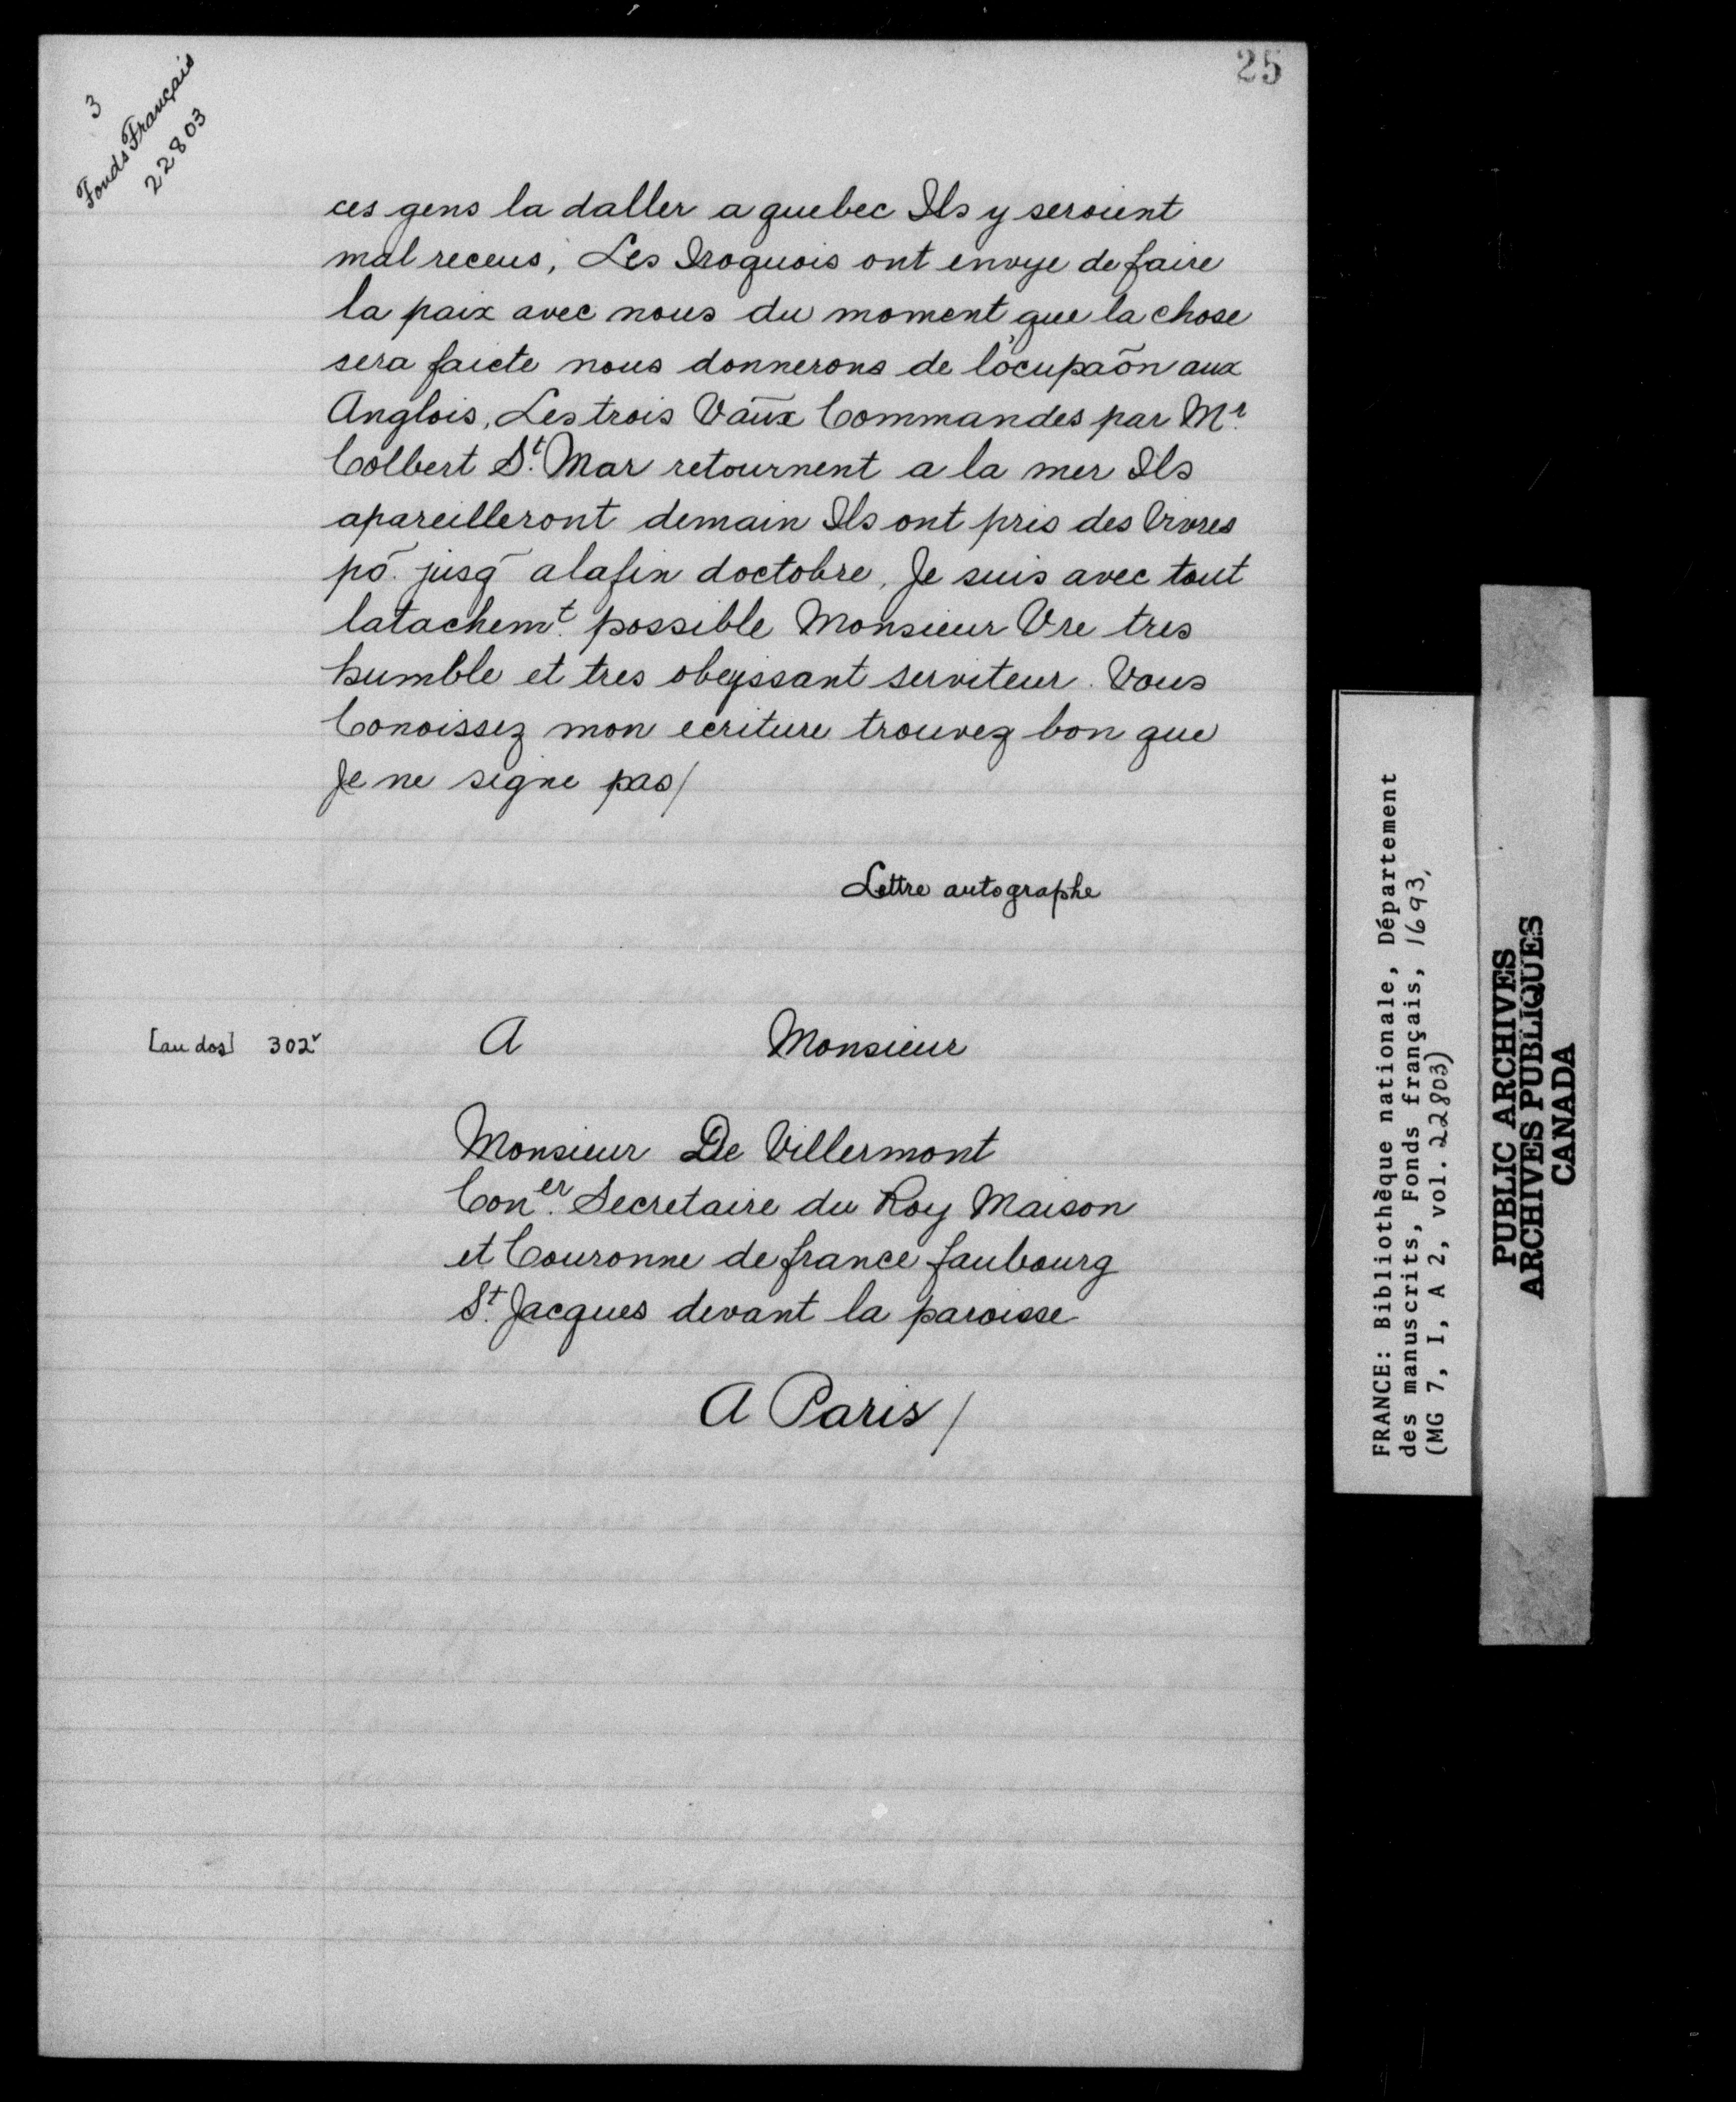 25
3
Fonds Français
22803
ces gens la daller a quebec Ils y seroient
mal receus, Les Iroquois ont envye de faire
la paix avec nous du moment que la chose
sera faicte nous donnerons de l'ocupaõn aux
Anglois, Les trois Vaũx Commandes par Mr.
Colbert St. Mar retournent a la mer Ils
apareilleront demain Ils ont pris des Vivres
põ. jusq̃ alafin doctobre, Je suis avec tout
latachemt. possible Monsieur Vre tres
humble et tres obeyssant serviteur. Vous
Conoissez mon ecriture trouvez bon que
Je ne signe pas/
Lettre autographe
[au dos] 302v
A Monsieur
Monsieur De Villermont
Coner. Secretaire du Roy Maison
et Couronne de france faubourg
St. Jacques devant la paroisse
A Paris/
FRANCE: Bibliothèque nationale, Département
des manuscrits, Fonds français, 1693,
(MG 7, I, A 2, vol. 22803)
PUBLIC ARCHIVES
ARCHIVES PUBLIQUES
CANADA